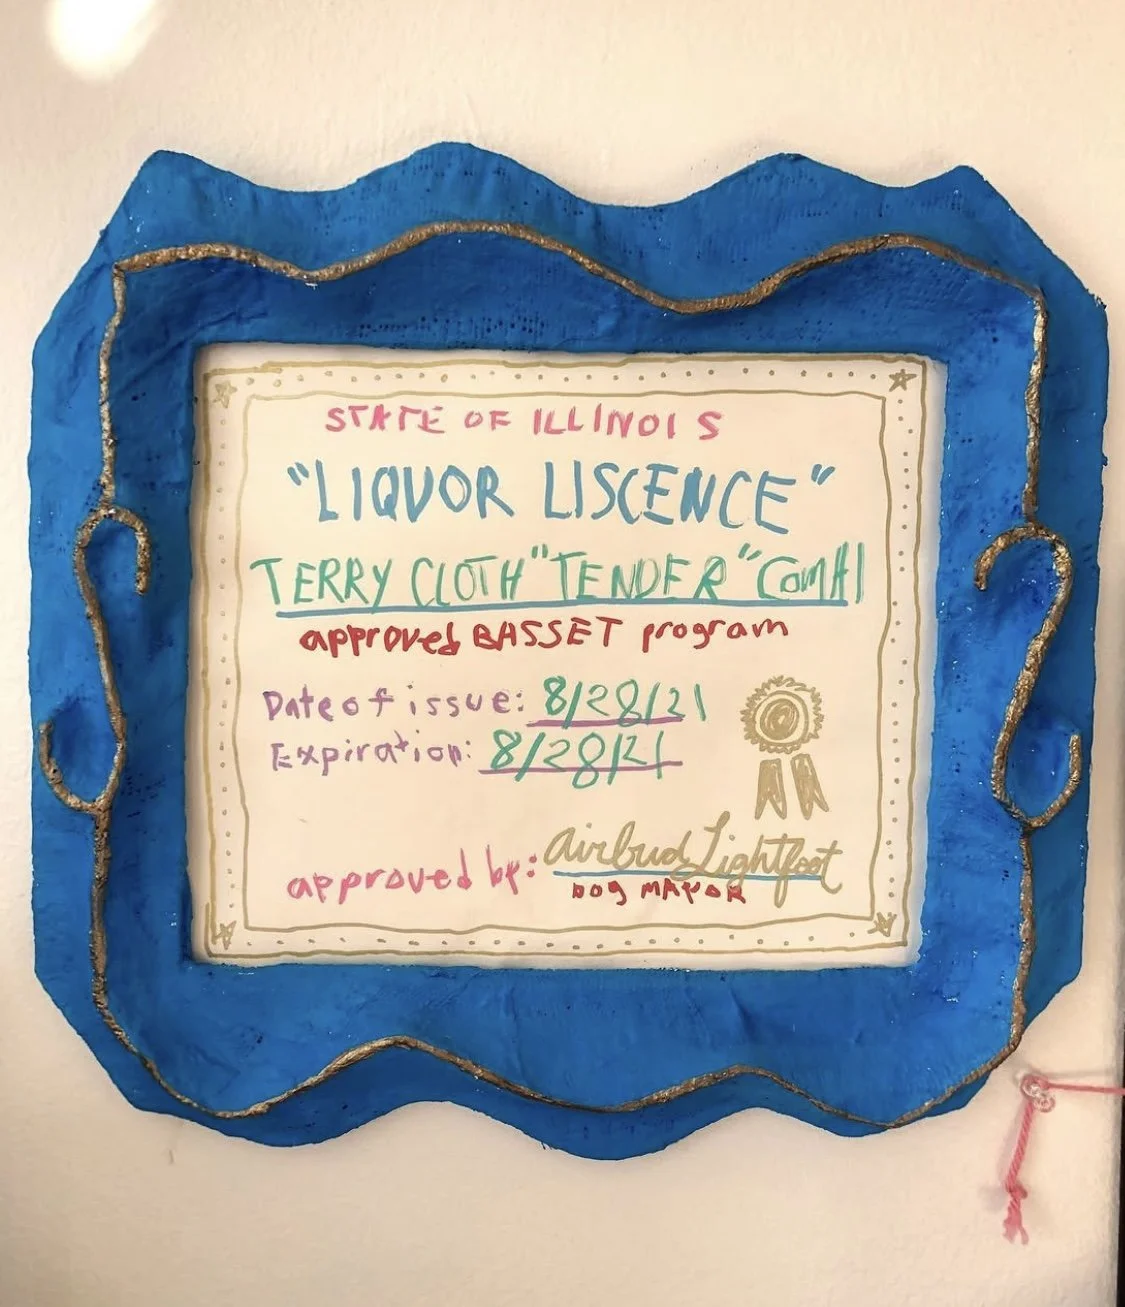 STATE OF ILLINOIS
"LIQUOR LISCENCE"
TERRY CLOTH "TENDER"
approved BASSET program
Date of issue: 8/28/21
Expiration: 8/28/21
approved by: airbud Lightfoot
DOG MAYOR